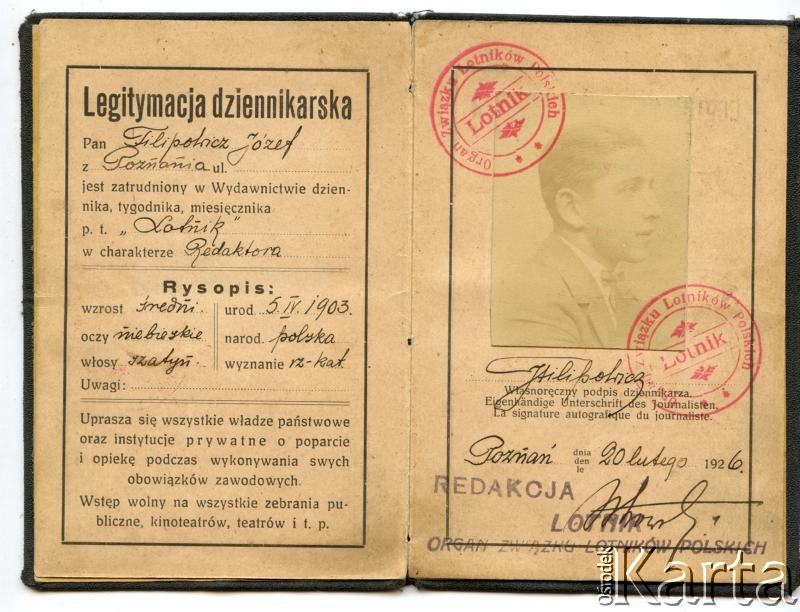 Legitymacja dziennikarska
Pan Filipowicz Józef
z Poznania ul.
jest zatrudniony w Wydawnictwie dzien-
nika, tygodnika, miesięcznika
p. t. „Lotnik"
w charakterze Redaktora
Rysopis:
wzrost średni.
oczy niebieskie
włosy szatyn.
Uwagi:
urod. 5. IV. 1903.
narod. polska
wyznanie rz-kat.
Uprasza się wszystkie władze państwowe
oraz instytucje prywatne o poparcie
i opiekę podczas wykonywania swych
obowiązków zawodowych.
Wstęp wolny na wszystkie zebrania pu-
bliczne, kinoteatrów, teatrów i t. p.
Organ Związku Lotników Polskich
Lotnik
Związku Lotników Polskich
Lotnik
JFilipowicz
Własnoręczny podpis dziennikarza.
Eigenhändige Unterschrift des Journalisten.
La signature autografique du journaliste.
Poznań dnia den le 20 lutego 1926.
REDAKCJA
LOTNIK
ORGAN ZWIĄZKU LOTNIKÓW POLSKICH
ośrodek Karta